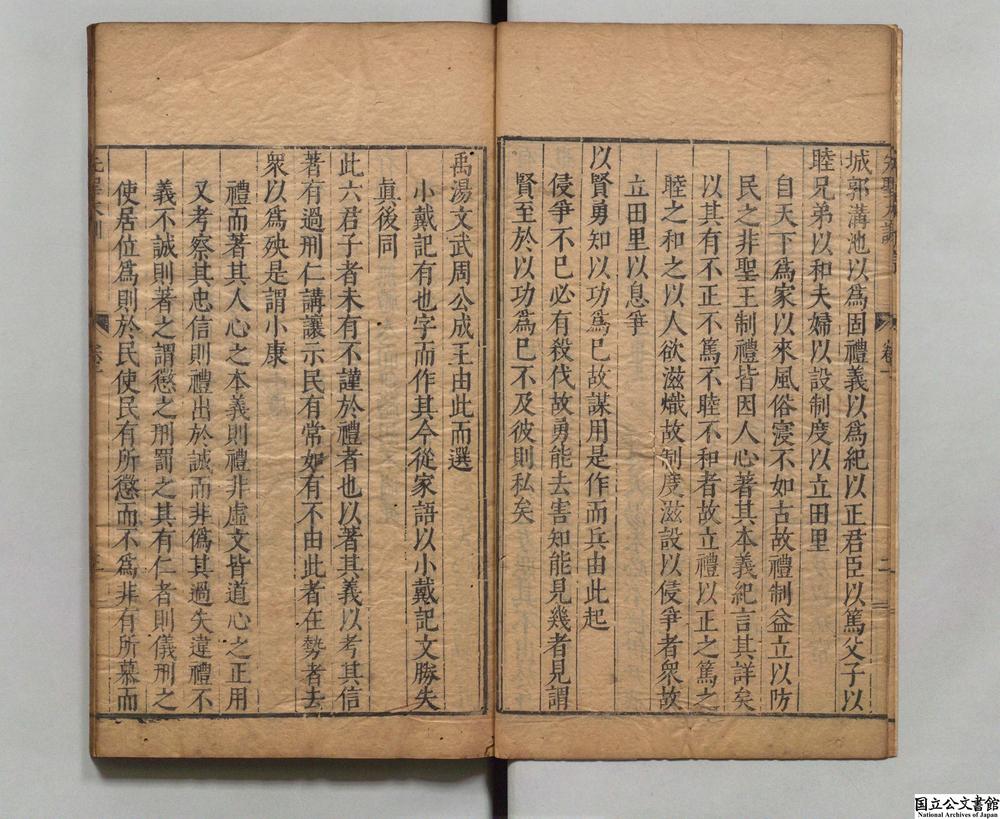 城郭溝池以爲固禮義以爲紀以正君臣以篤父子以
睦兄弟以和夫婦以設制度以立田里
自天下爲家以來風俗寖不如古故禮制益立以防
民之非聖王制禮皆因人心著其本義紀言其詳矣
以其有不正不篤不睦不和者故立禮以正之篤之
睦之和之以人欲滋熾故制度滋設以侵爭者衆故
立田里以息爭
以賢勇知以功爲已故謀用是作而兵由此起
侵爭不已必有殺伐故勇能去害知能見幾者見謂
賢至於以功爲已不及彼則私矣
卷一
二
禹湯文武周公成王由此而選
小戴記有也字而作其今從家語以小戴記文勝失
眞後同
此六君子者未有不謹於禮者也以著其義以考其信
著有過刑仁講讓示民有常如有不由此者在勢者去
衆以爲殃是謂小康
禮而著其人心之本義則禮非虛文皆道心之正用
又考察其忠信則禮出於誠而非僞其過失違禮不
義不誠則著之謂懲之刑罰之其有仁者則儀刑之
使居位爲則於民使民有所懲而不爲非有所慕而
国立公文書館
National Archives of Japan